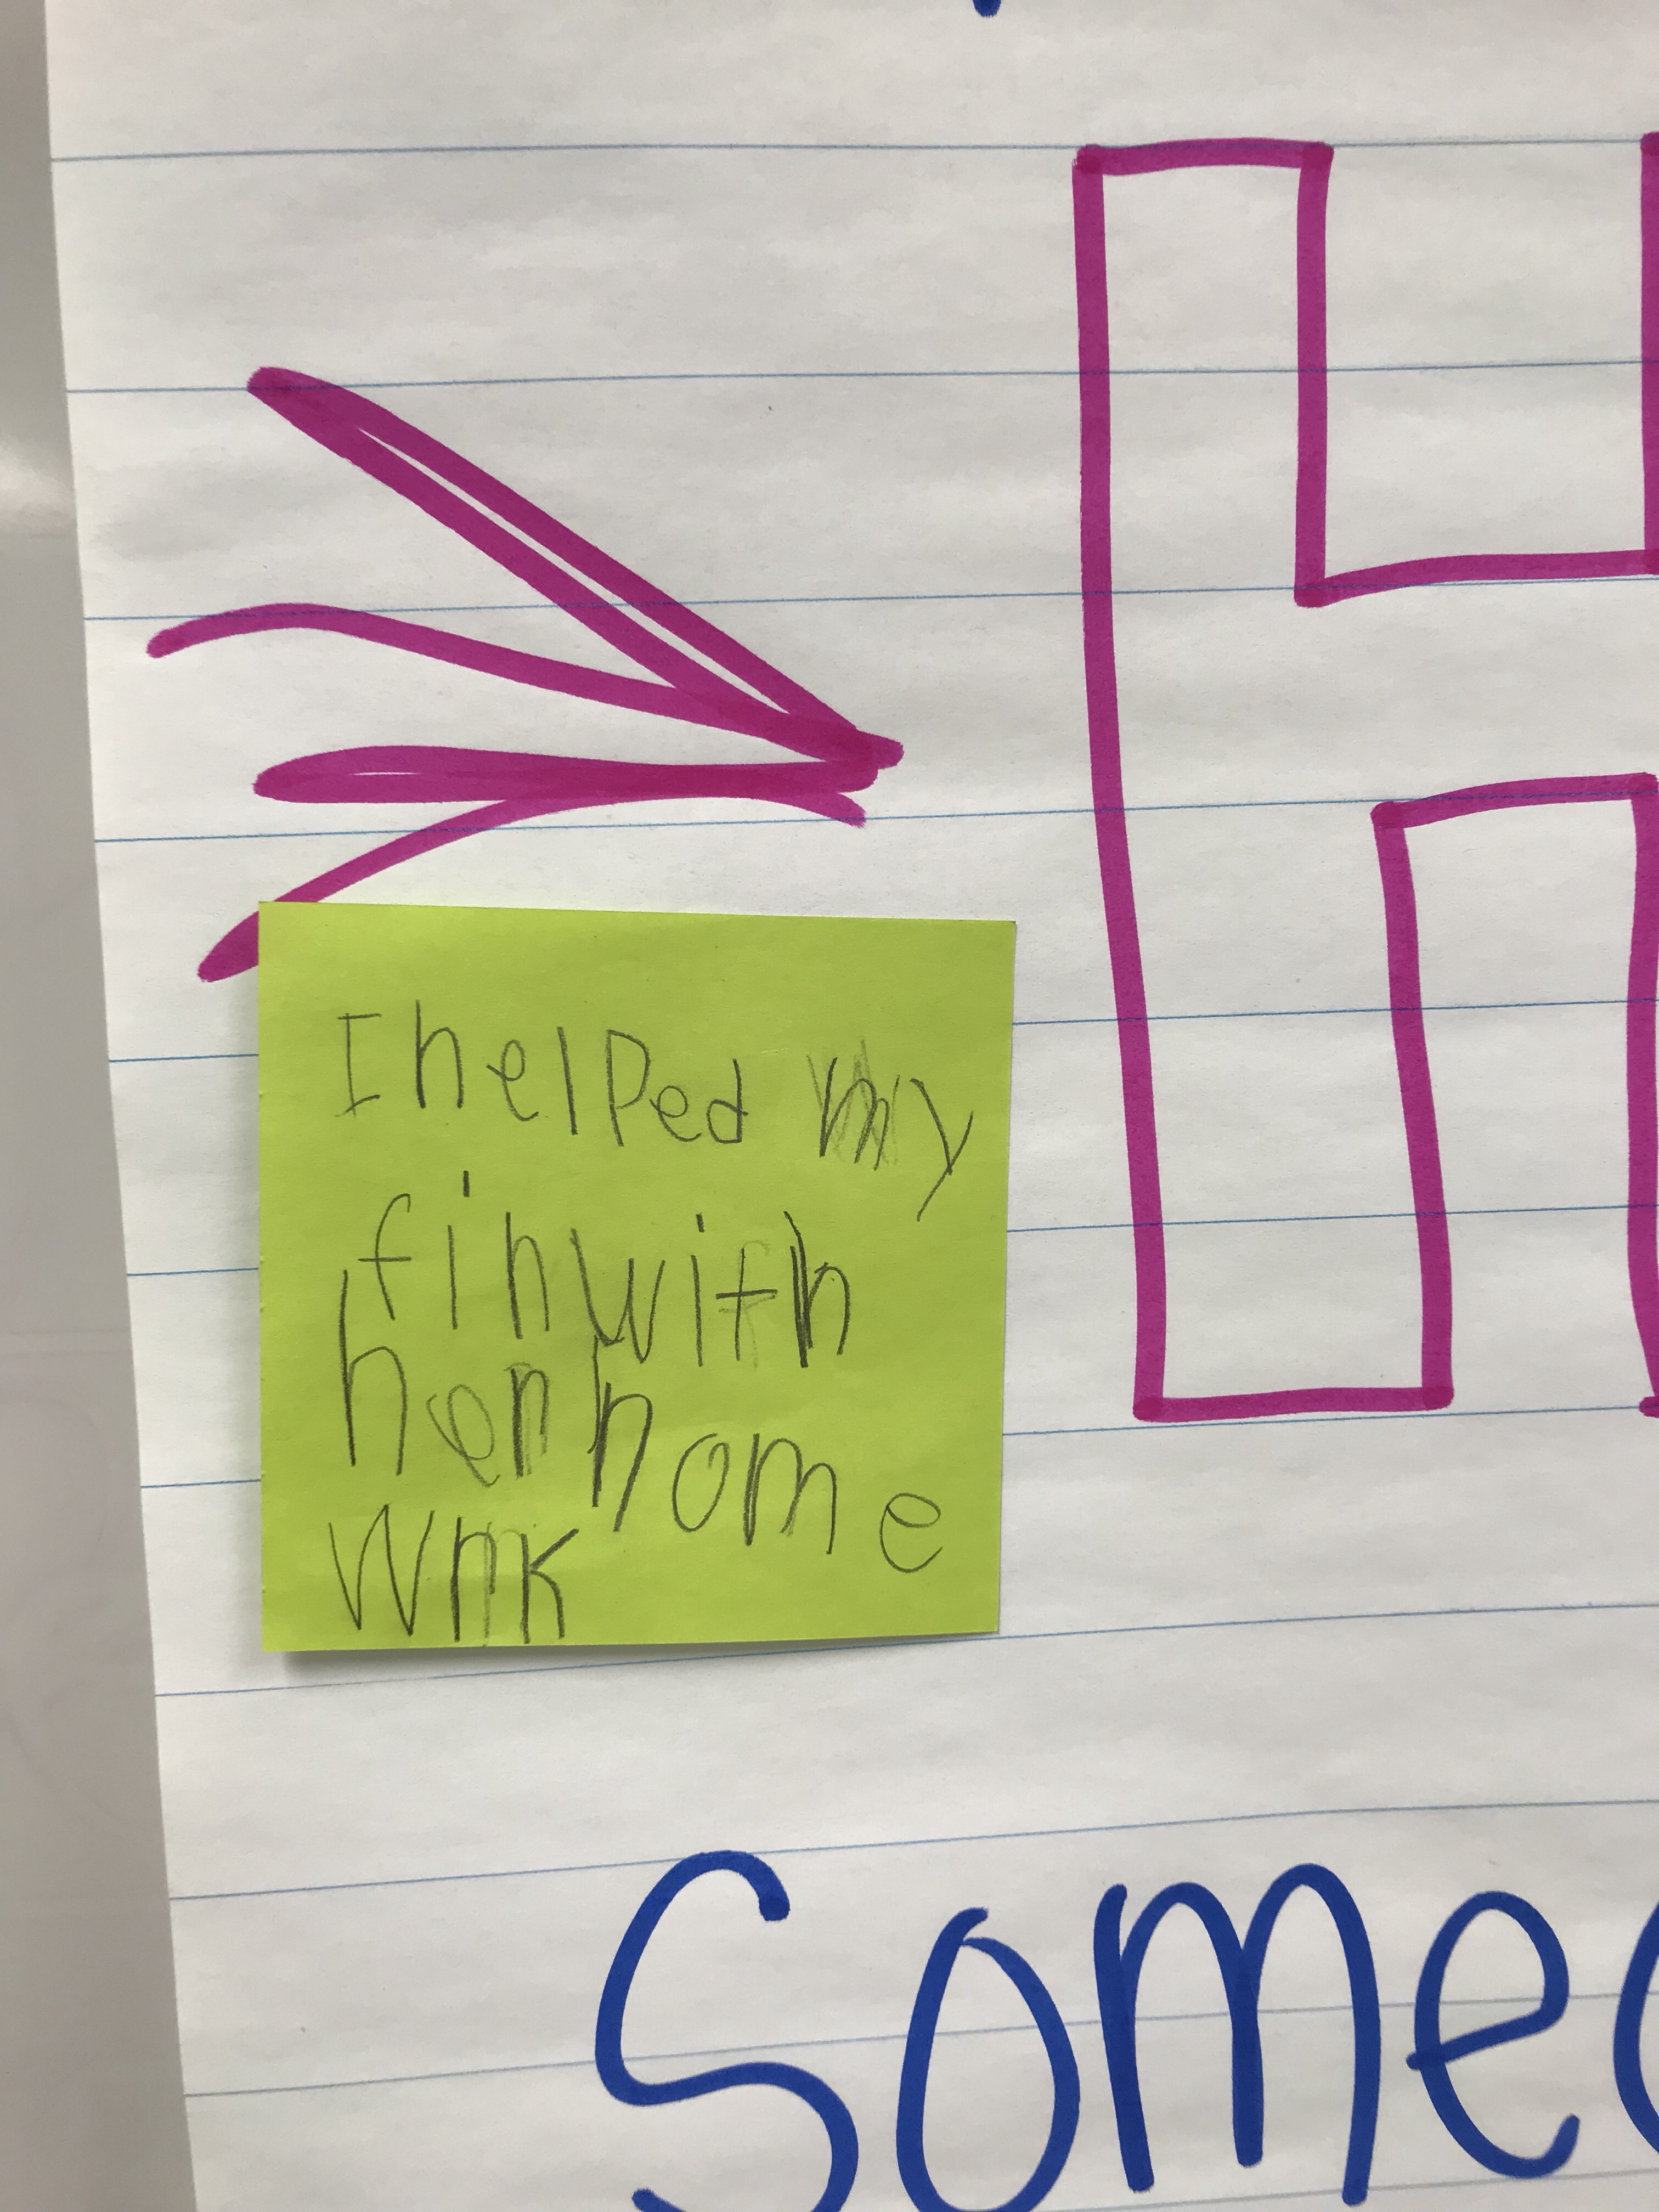 H
I helped my
fin with
her home
wrk
Some